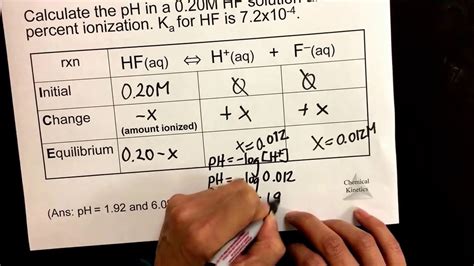 Calculate the pH in a 0.20M HF solution
percent ionization. Ka for HF is 7.2x10-4.
rxn HF(aq) ⇔ H+(aq) + F–(aq)
Initial 0.20M 0 0
Change -x + x + x
(amount ionized)
Equilibrium 0.20-x x=0.012 x=0.012M
pH=-log[H+]
pH = -log 0.012
1.9
Chemical
Kinetics
(Ans: pH = 1.92 and 6.0